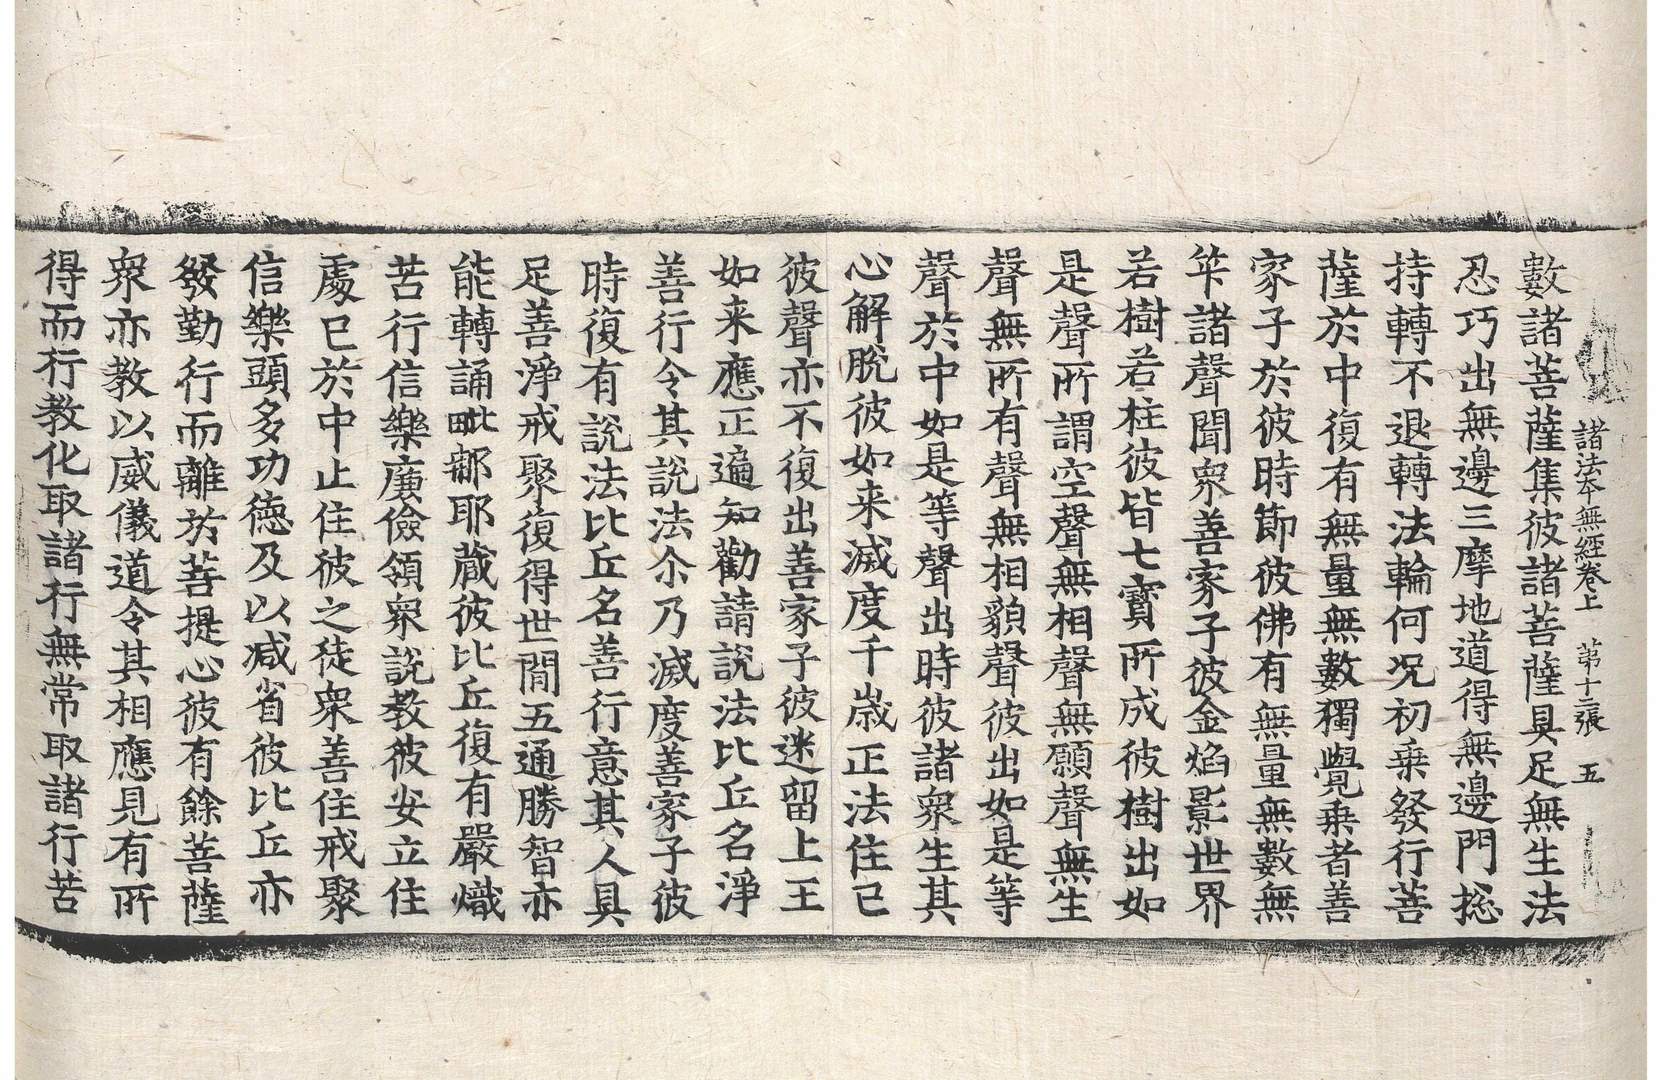 諸法本無經卷上　第十二張　五
數諸菩薩集彼諸菩薩具足無生法
忍巧出無邊三摩地道得無邊門揔
持轉不退轉法輪何況初乘發行菩
薩於中復有無量無數獨覺乘者善
家子於彼時節彼佛有無量無數無
筭諸聲聞衆善家子彼金焰影世界
若樹若柱彼皆七寶所成彼樹出如
是聲所謂空聲無相聲無願聲無生
聲無所有聲無相貌聲彼出如是等
聲於中如是等聲出時彼諸衆生其
心解脫彼如来滅度千歲正法住已
彼聲亦不復出善家子彼迷留上王
如来應正遍知勸請說法比丘名淨
善行令其說法尒乃滅度善家子彼
時復有說法比丘名善行意其人具
足善淨戒聚復得世間五通勝智亦
能轉誦毗那耶蔵彼比丘復有嚴熾
苦行信樂廣儉領衆說教彼安立住
處已於中止住彼之徒衆善住戒聚
信樂頭多功德及以減省彼比丘亦
發勤行而離於菩提心彼有餘菩薩
衆亦教以威儀道令其相應見有所
得而行教化取諸行無常取諸行苦